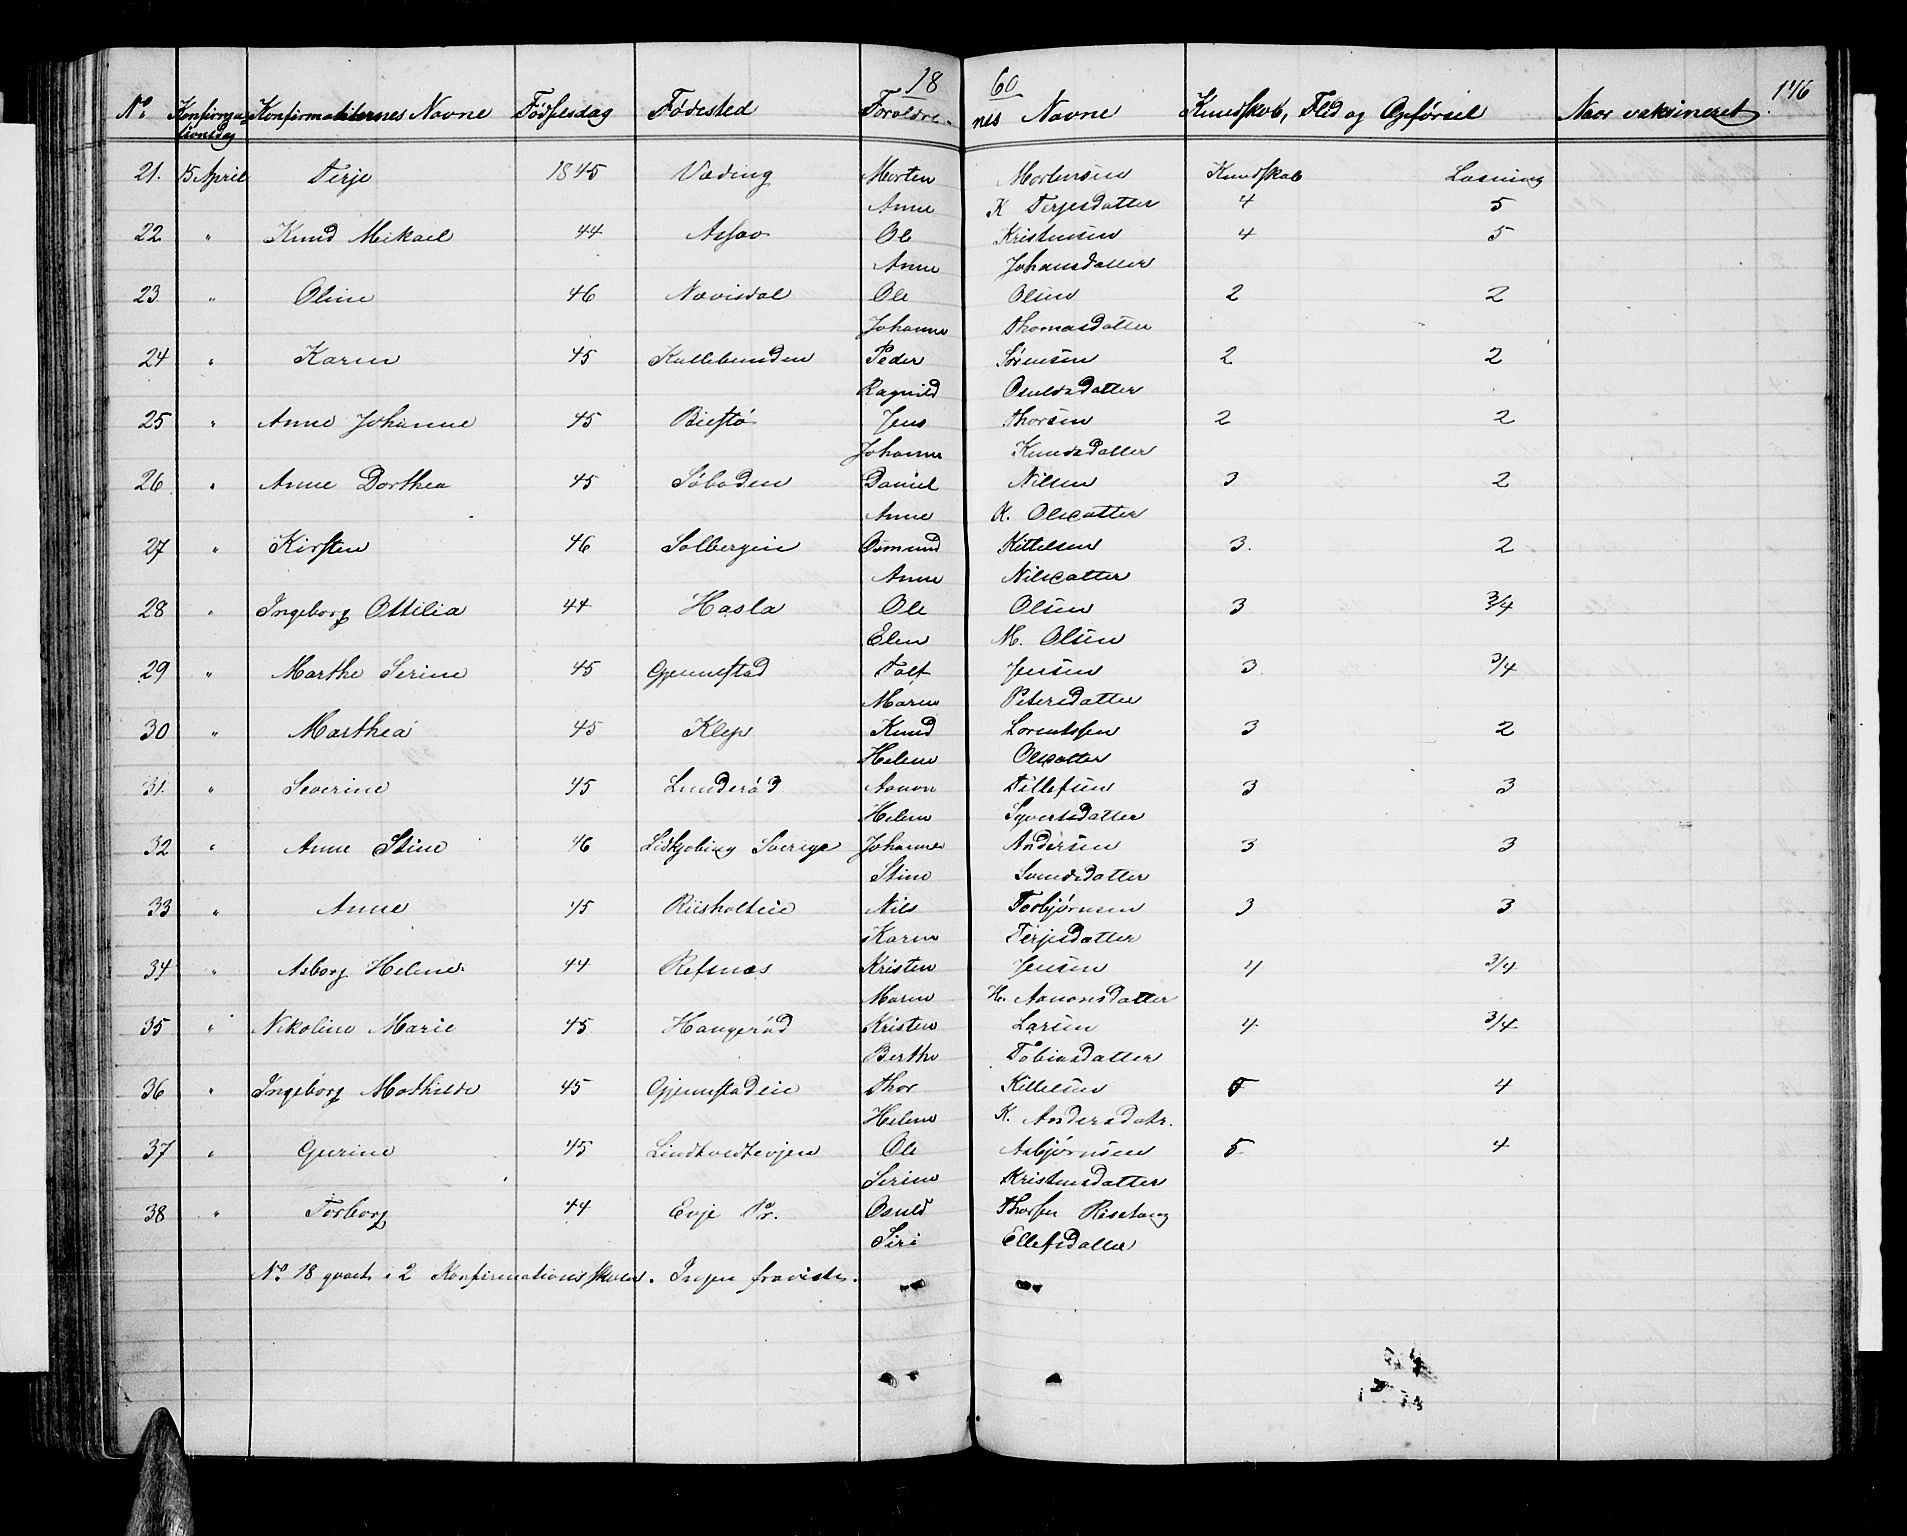 18 60 146
No. Konfirma- Konfirmantternes Navne Fødselsdag Fødested Foreldre- nes Navne Kundskab, Flid og Opførsel Naar vaksineret
tionsdag
21. 15 April Terje 1845 Væding Morten Mortensen Kundskab Læsning
Anne K Terjesdatter 4 5
22 " Knud Mikael 44 Ole Kristensen 4 5
Anne Johansdatter
23 " Oline 46 Nævisdal Ole Olsen 2 2
Johanne Thomasdatter
24 " Karen 45 Kallebunden Peder Sørensen 2 2
Ragnild Osuldsdatter
25 " Anne Johanne 45 Biestø Jens Thorsen 2 2
Johanne Knudsdatter
26 " Anne Dorthea 45 Søboden Daniel Nilsen 3 2
Anne K. Olsdatter
27 " Kirsten 46 Solbergeie Osmund Kittelsen 3. 2
Anne Nilsdatter
28 " Ingeborg Ottilia 44 Hasla Ole Olsen 3 3/4
Elen M. Olsen
29 " Marthe Serine 45 Gjennestad Tolf Jensen 3 3/4
Maren Petersdatter
30 " Marthea 45 Klep Knud Lorentssen 3 2
Helene Olsdatter
31. " Severine 45 Lunderød Aanon Tellefsen 3 3
Helene Syvertsdatter
32 " Anne Stine 46 Lidkjobing Sverige Johannes Andersen 3 3
Stine Svendsdatter
33 " Anne 45 Riisholteie Nils Torbjørnsen 3 3
Karen Terjesdatter
34 " Asborg Helene 44 Refsnæs Kristen Jensen 4 3/4
Maren H. Aanonsdatter
35 " Nikoline Marie 45 Haugerød Kristen Larsen 4 3/4
Berthe Tobiasdatter
36 " Ingeborg Mathilde 45 Gjennestadeie Thor Kittelsen 5 4
Helene K. Andersdatr.
37 " Gurine 45 Ole Asbjørnsen 5 4
Serine Kristensdatter
38 " Torborg 44 Evje Pr. Osuld Thorsen
Siri Ellefsdatter
No. 18 i 2 Konfirmationsskoler. Ingen fraviste.